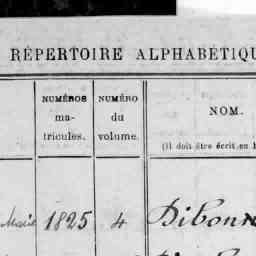 RÉPERTOIRE ALPHABÉTIQU
NUMÉROS ma- tricules.
NUMÉRO du volume.
NOM.
(Il doit être écrit en
Marie 1825 4 Dibonn